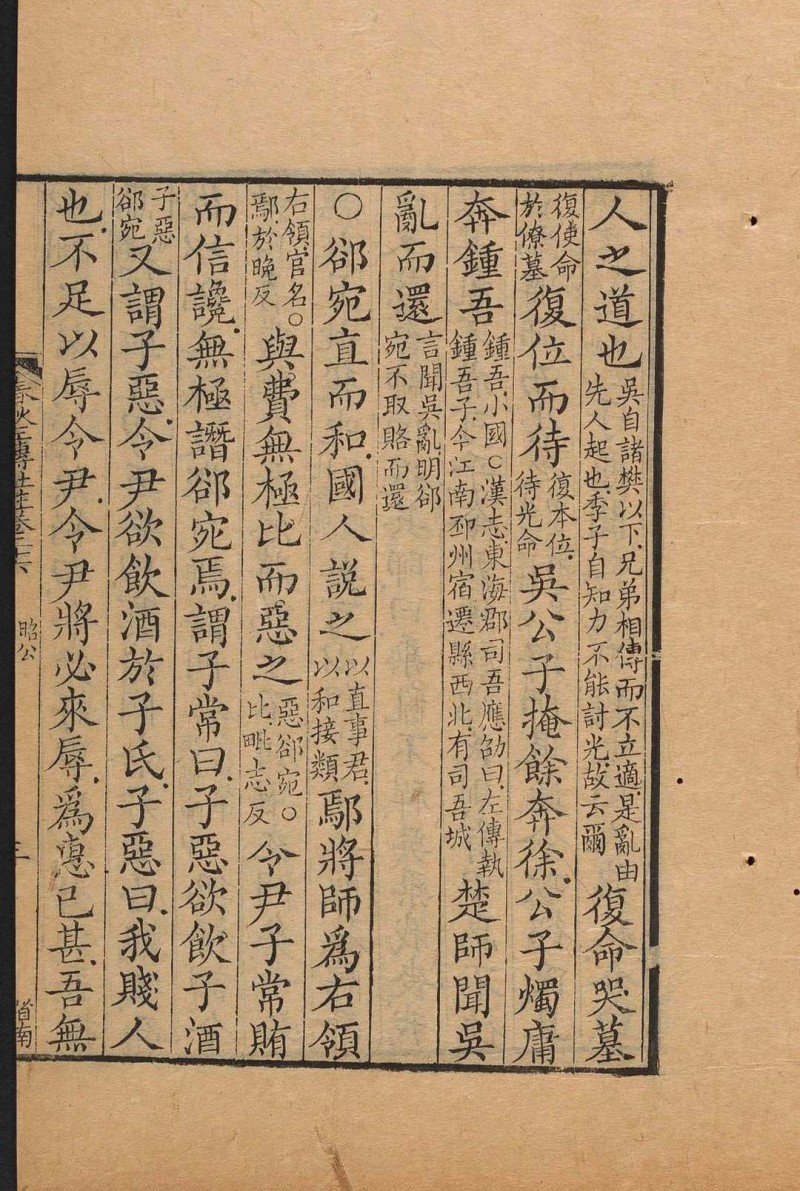 人之道也吳自諸樊以下兄弟相傳而不立適是亂由先人起也季子自知力不能討光故云爾復命哭墓
復使命於僚墓復位而待復本位待光命吳公子掩餘奔徐公子燭庸
奔鍾吾鍾吾小國○漢志東海郡司吾應劭曰左傳執鍾吾子今江南邳州宿遷縣西北有司吾城楚師聞吳
亂而還言聞吳亂明郤宛不取賂而還
○郤宛直而和國人說之以直事君以和接類鄢將師爲右領
右領官名○鄢於晚反與費無極比而惡之惡郤宛○比毗志反令尹子常賄
而信讒無極譖郤宛焉謂子常曰子惡欲飲子酒
子惡郤宛又謂子惡令尹欲飲酒於子氏子惡曰我賤人
也不足以辱令尹令尹將必來辱爲惠已甚吾無
昭公